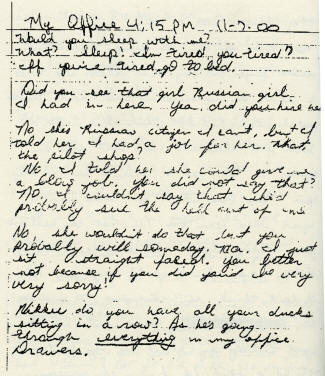 My Office 4:15 PM 11-7-00
Would you sleep with me?
What? Sleep! I'm tired, you tired?
If you're tired, go to bed.
Did you see that girl Russian girl
I had in here. Yea, did you hire her
No she's Russian citizen I can't, but I
told her I had a job for her. What,
the pilot shop?
No I told her she could give me
a blow job. You did not say that?
No, I wouldn't say that she'd
probably sue the hell out of me
No, she wouldn't do that but you
probably will someday. No. I just
sit straight faced. You better
not because if you did you'd be very
very sorry!
Nikki do you have all your ducks
sitting in a row? As he's going
through everything in my office
Drawers.